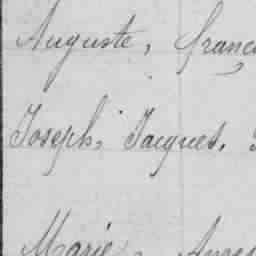 Auguste, franç
Joseph, Jacques,
Marie,